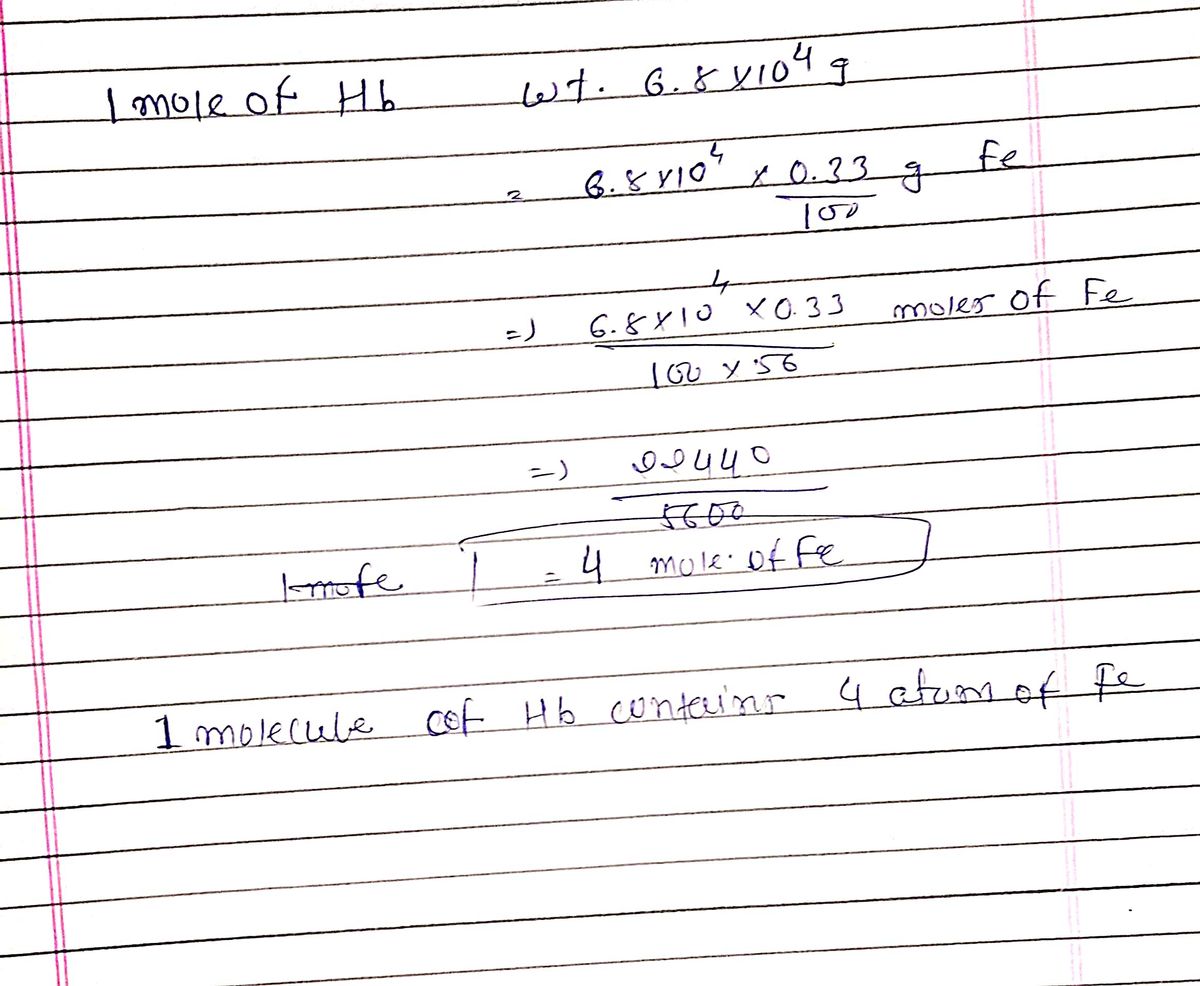 1 mole of Hb wt. 6.8 × 10⁴ g
= 6.8 × 10⁴ × 0.33/100 g Fe
=) 6.8 × 10⁴ × 0.33 / 100 × 56 moles of Fe
=) 22440 / 5600
1 mole = 4 mole of Fe
1 molecule of Hb contains 4 atom of Fe